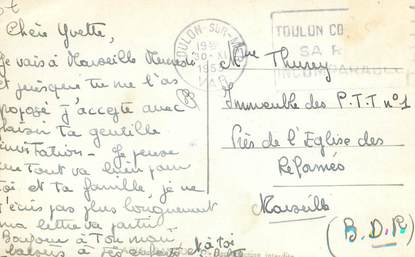 Chère Yvette,
Je vais à Marseille
et puisque tu me l'as
proposé j'accepte avec
plaisir ta gentille
invitation - Je pense
que tout va bien pour
toi et ta famille, je ne
t'écris pas plus longuement
ma lettre va partir
Bonjour à Ton mari
et à toi
TOULON-SUR-MER
VAR
TOULON
SA R
INCOMPARABLE
Mme Thurey
Immeuble des P.T.T n°1
Près de l'Eglise des
Réformés
Marseille
(B.D.R)
interdite